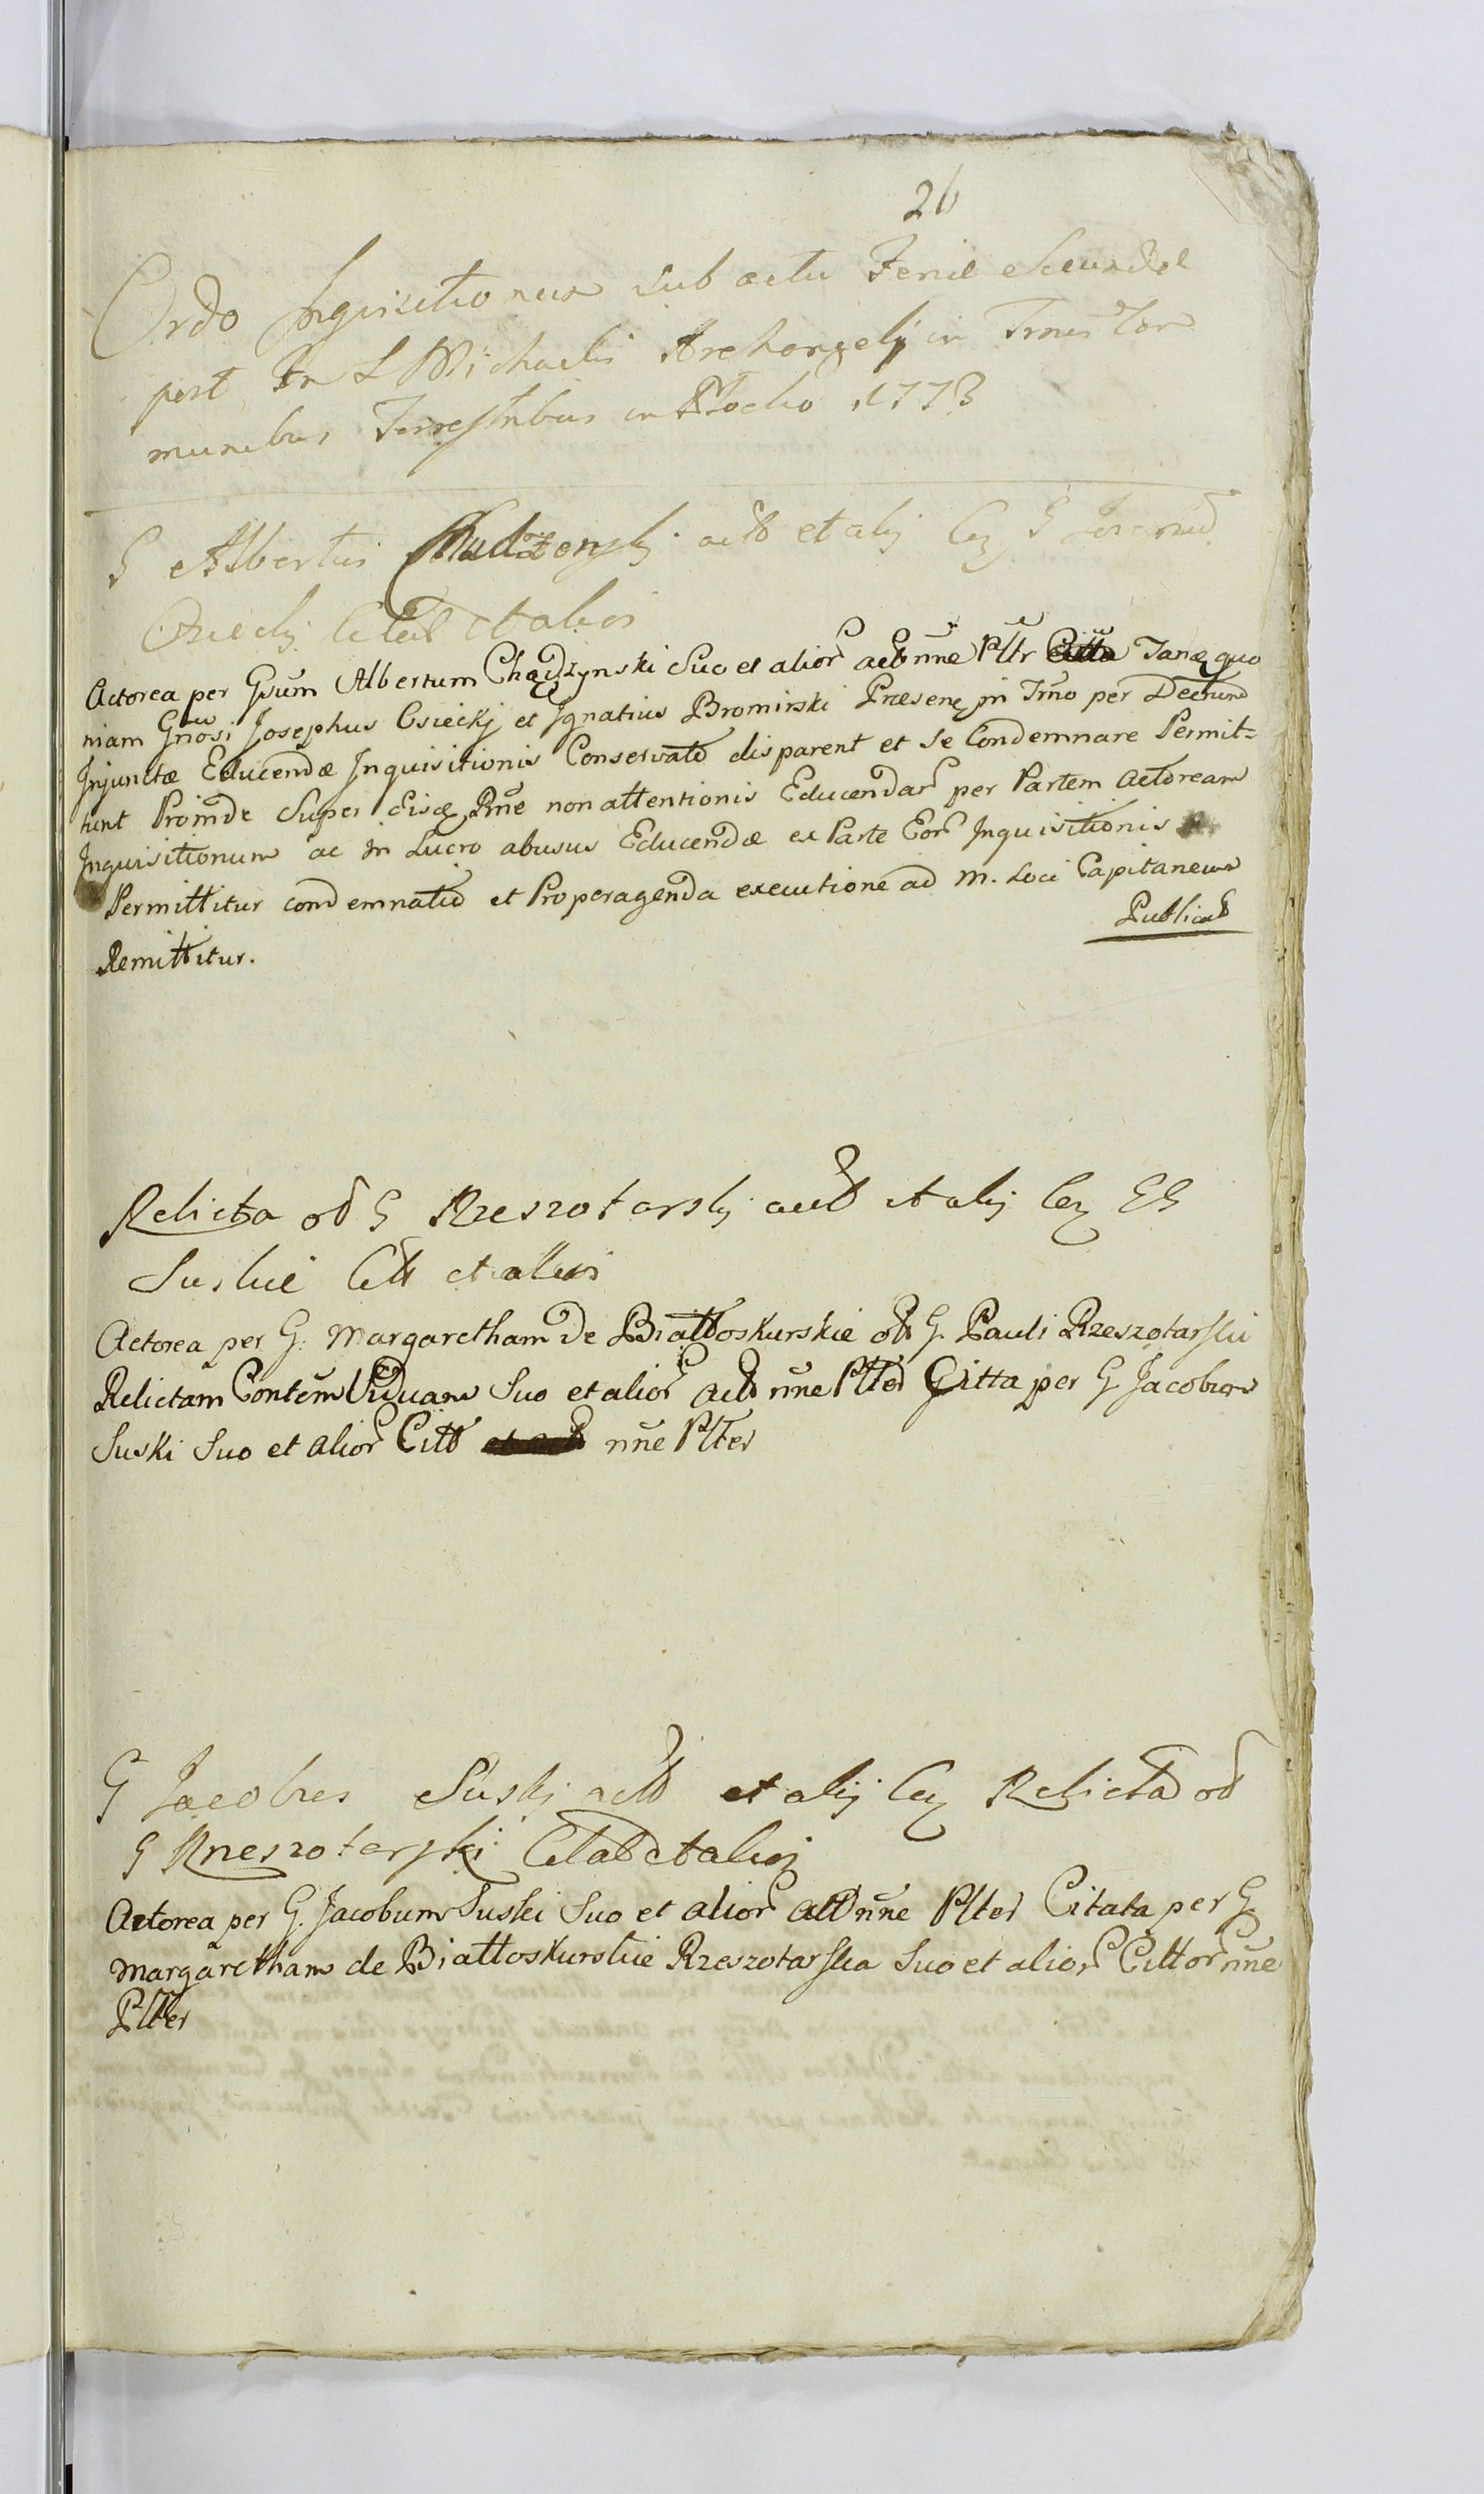 26
Ordo Inquisitionum sub actu Feriae Secundae
post Fm S Michaelis Archangeli in Trnis Ter
munibus Terrestribus in Plocko 1773
G Albertus et alij G
Csiecki Citat et alios
Actorea per Gsum Albertum Chądzynski Suo et alior act nne Pltr Tanq quo
niam Gnosi Josephus Csieckj et Jgnatius Bromirski Praesenq in Trno per Decrum
Injunctae Educendae Inquisitionis Conservato disparent et se Condemnare Permit=
tunt Proinde Super eisq Rne non attentionis Educendar per Partem Actoream
Inquisitionum ac in Lucro abusus Educendae ex Parte Eor Inquisitionis
Permittitur condemnatio et Properagenda executione ad M. Loci Capitaneum
Publicat
Remittitur.
Relicta od G Rzeszotarskj act et alij Cq GG
Suskie Citt et alios
Actorea per G. Margaretham de Biattoskurskie od G. Pauli Rzeszotarski
Relictam Contem Viduam Suo et alior act nne Plter Citta per G Jacobum
Suski Suo et alior Citt nne Plter
G Jacobus Suskj act et alij Cq Relicta od
G Rzeszotarski Citat et alios
Actorea per G. Jacobum Suski Suo et alior act nne Plter Citata per G.
Margaretham de Biattoskurskie Rzeszotarska Suo et alior Cittor nne
Plter